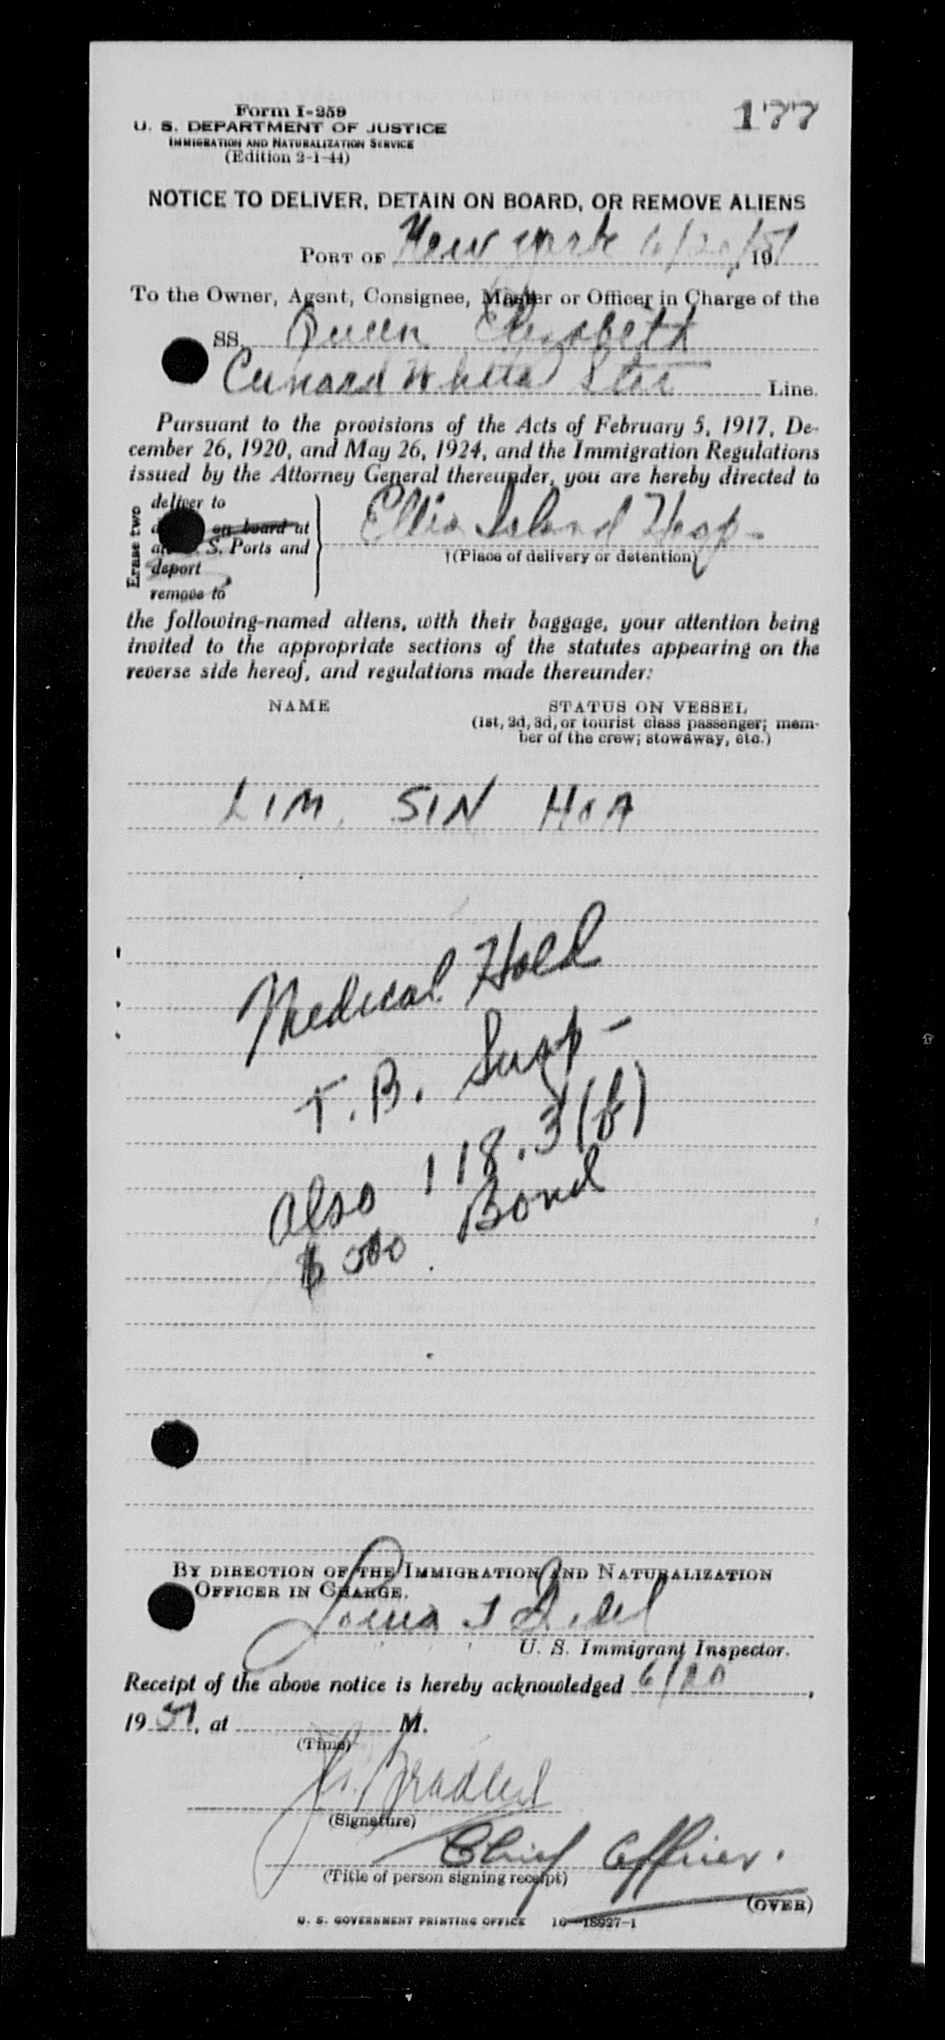 Form I-259
177
U. S. DEPARTMENT OF JUSTICE
IMMIGRATION AND NATURALIZATION SERVICE
(Edition 2-1-44)
NOTICE TO DELIVER, DETAIN ON BOARD, OR REMOVE ALIENS
PORT OF New York 6/20/51, 19
To the Owner, Agent, Consignee, Master or Officer in Charge of the
SS. Queen Elizabeth
Cunard White Star Line.
Pursuant to the provisions of the Acts of February 5, 1917, De-
cember 26, 1920, and May 26, 1924, and the Immigration Regulations
issued by the Attorney General thereunder, you are hereby directed to
Erase two
deliver to
on board at
S. Ports and
deport
remove to
Ellis Island Hosp-
†(Place of delivery or detention)
the following-named aliens, with their baggage, your attention being
invited to the appropriate sections of the statutes appearing on the
reverse side hereof, and regulations made thereunder:
NAME STATUS ON VESSEL
(1st, 2d, 3d, or tourist class passenger; mem-
ber of the crew; stowaway, etc.)
LIM, SIN HOA
Medical Hold
T.B. Susp-
Also 118.3(b)
Bond
BY DIRECTION OF THE IMMIGRATION AND NATURALIZATION
OFFICER IN CHARGE.
U. S. Immigrant Inspector.
Receipt of the above notice is hereby acknowledged 6/20,
19 51, at M.
(Time)
(Signature)
Chief Officer.
(Title of person signing receipt)
(OVER)
U. S. GOVERNMENT PRINTING OFFICE 16—18927-1